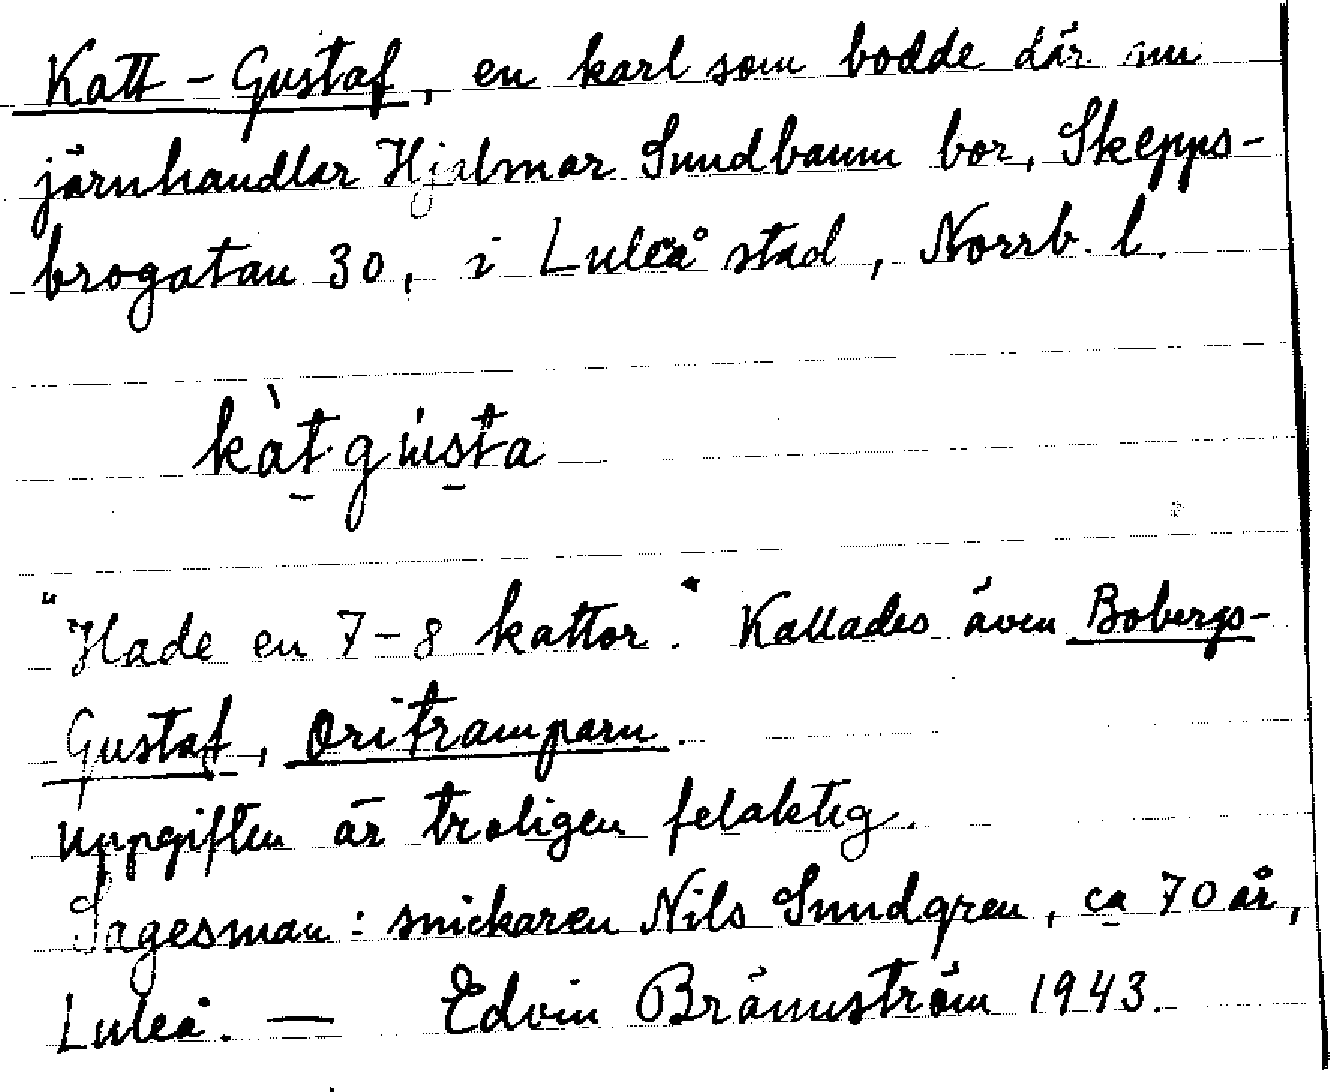 Katt-Gustaf, en karl som bodde där nu
järnhandlar Hjalmar Sundbaum bor, Skepps-
brogatan 30, i Luleå stad, Norrb. l.
kàt gústa
"Hade en 7-8 kattor." Kallades även Bobergs-
Gustaf, Oritramparn.
Uppgiften är troligen felaktig.
Sagesman: snickaren Nils Sundgren, ca 70 år,
Luleå. — Edvin Brännström 1943.